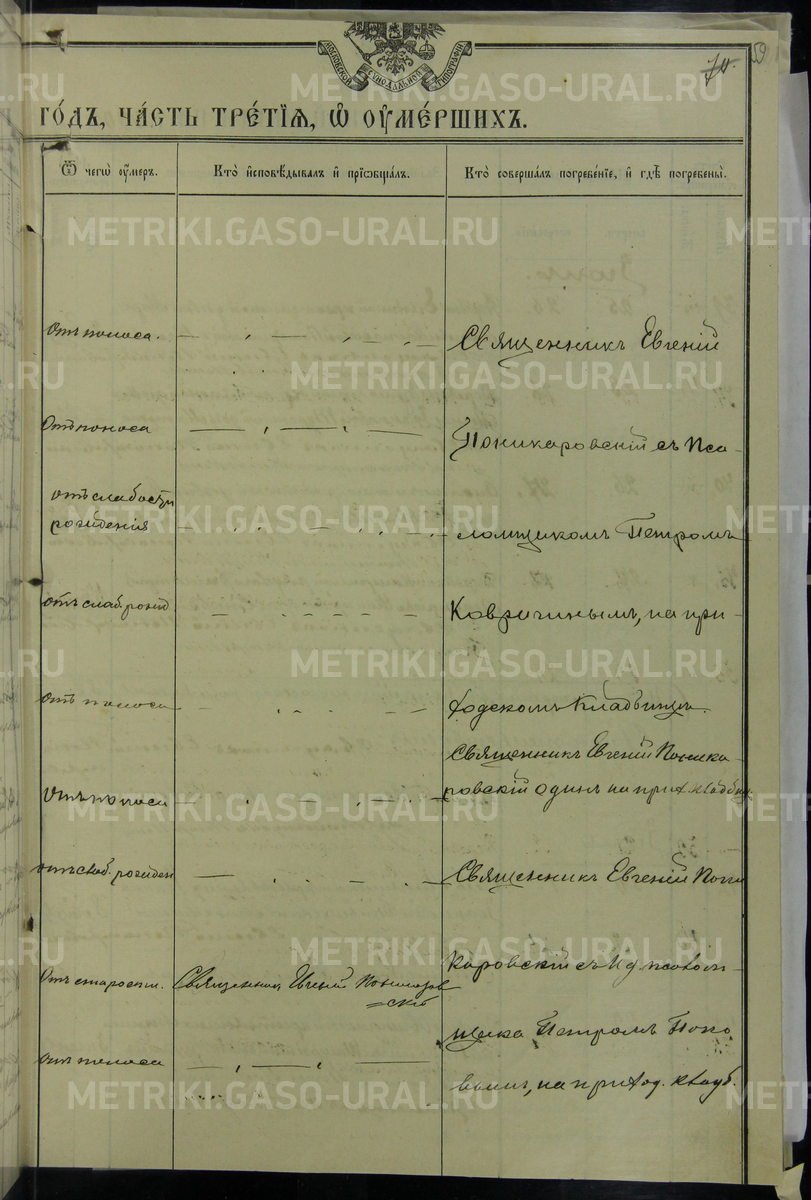 МОСКОВСКОЙ СѴНОДАЛЬНОЙ ТИПОГРАФІИ
70. 59
ГО́ДЪ, ЧА́СТЬ ТРЕ́ТІѦ, Ѽ ОУ҆МЕ́РШИХЪ.
Ѿ чегѡ̀ оу҆́меръ.
Кто̀ и҆сповѣ́дывалъ и҆ приѡбща́лъ.
Кто̀ соверша́лъ погребе́ніе, и҆ гдѣ̀ погребены̀.
Отъ поноса.
Священникъ Евгеній
Отъ поноса
Поникаровскій съ Пса-
отъ слабости
рожденія
ломщикомъ Петромъ
отъ слаб. рожд
Ковригинымъ, на при-
отъ поноса
ходскомъ кладбищѣ.
Священникъ Евгеній Поника-
Отъ поноса
ровскій одинъ на прих. кладбищ
отъ слаб. рожден
Священникъ Евгеній Пони
Отъ старости.
Священник Евгеній Поникаров
=скій
каровскій съ И д. псалом-
отъ поноса
щика Петромъ Попо
вымъ, на приход. кладб.
METRIKI.GASO-URAL.RU